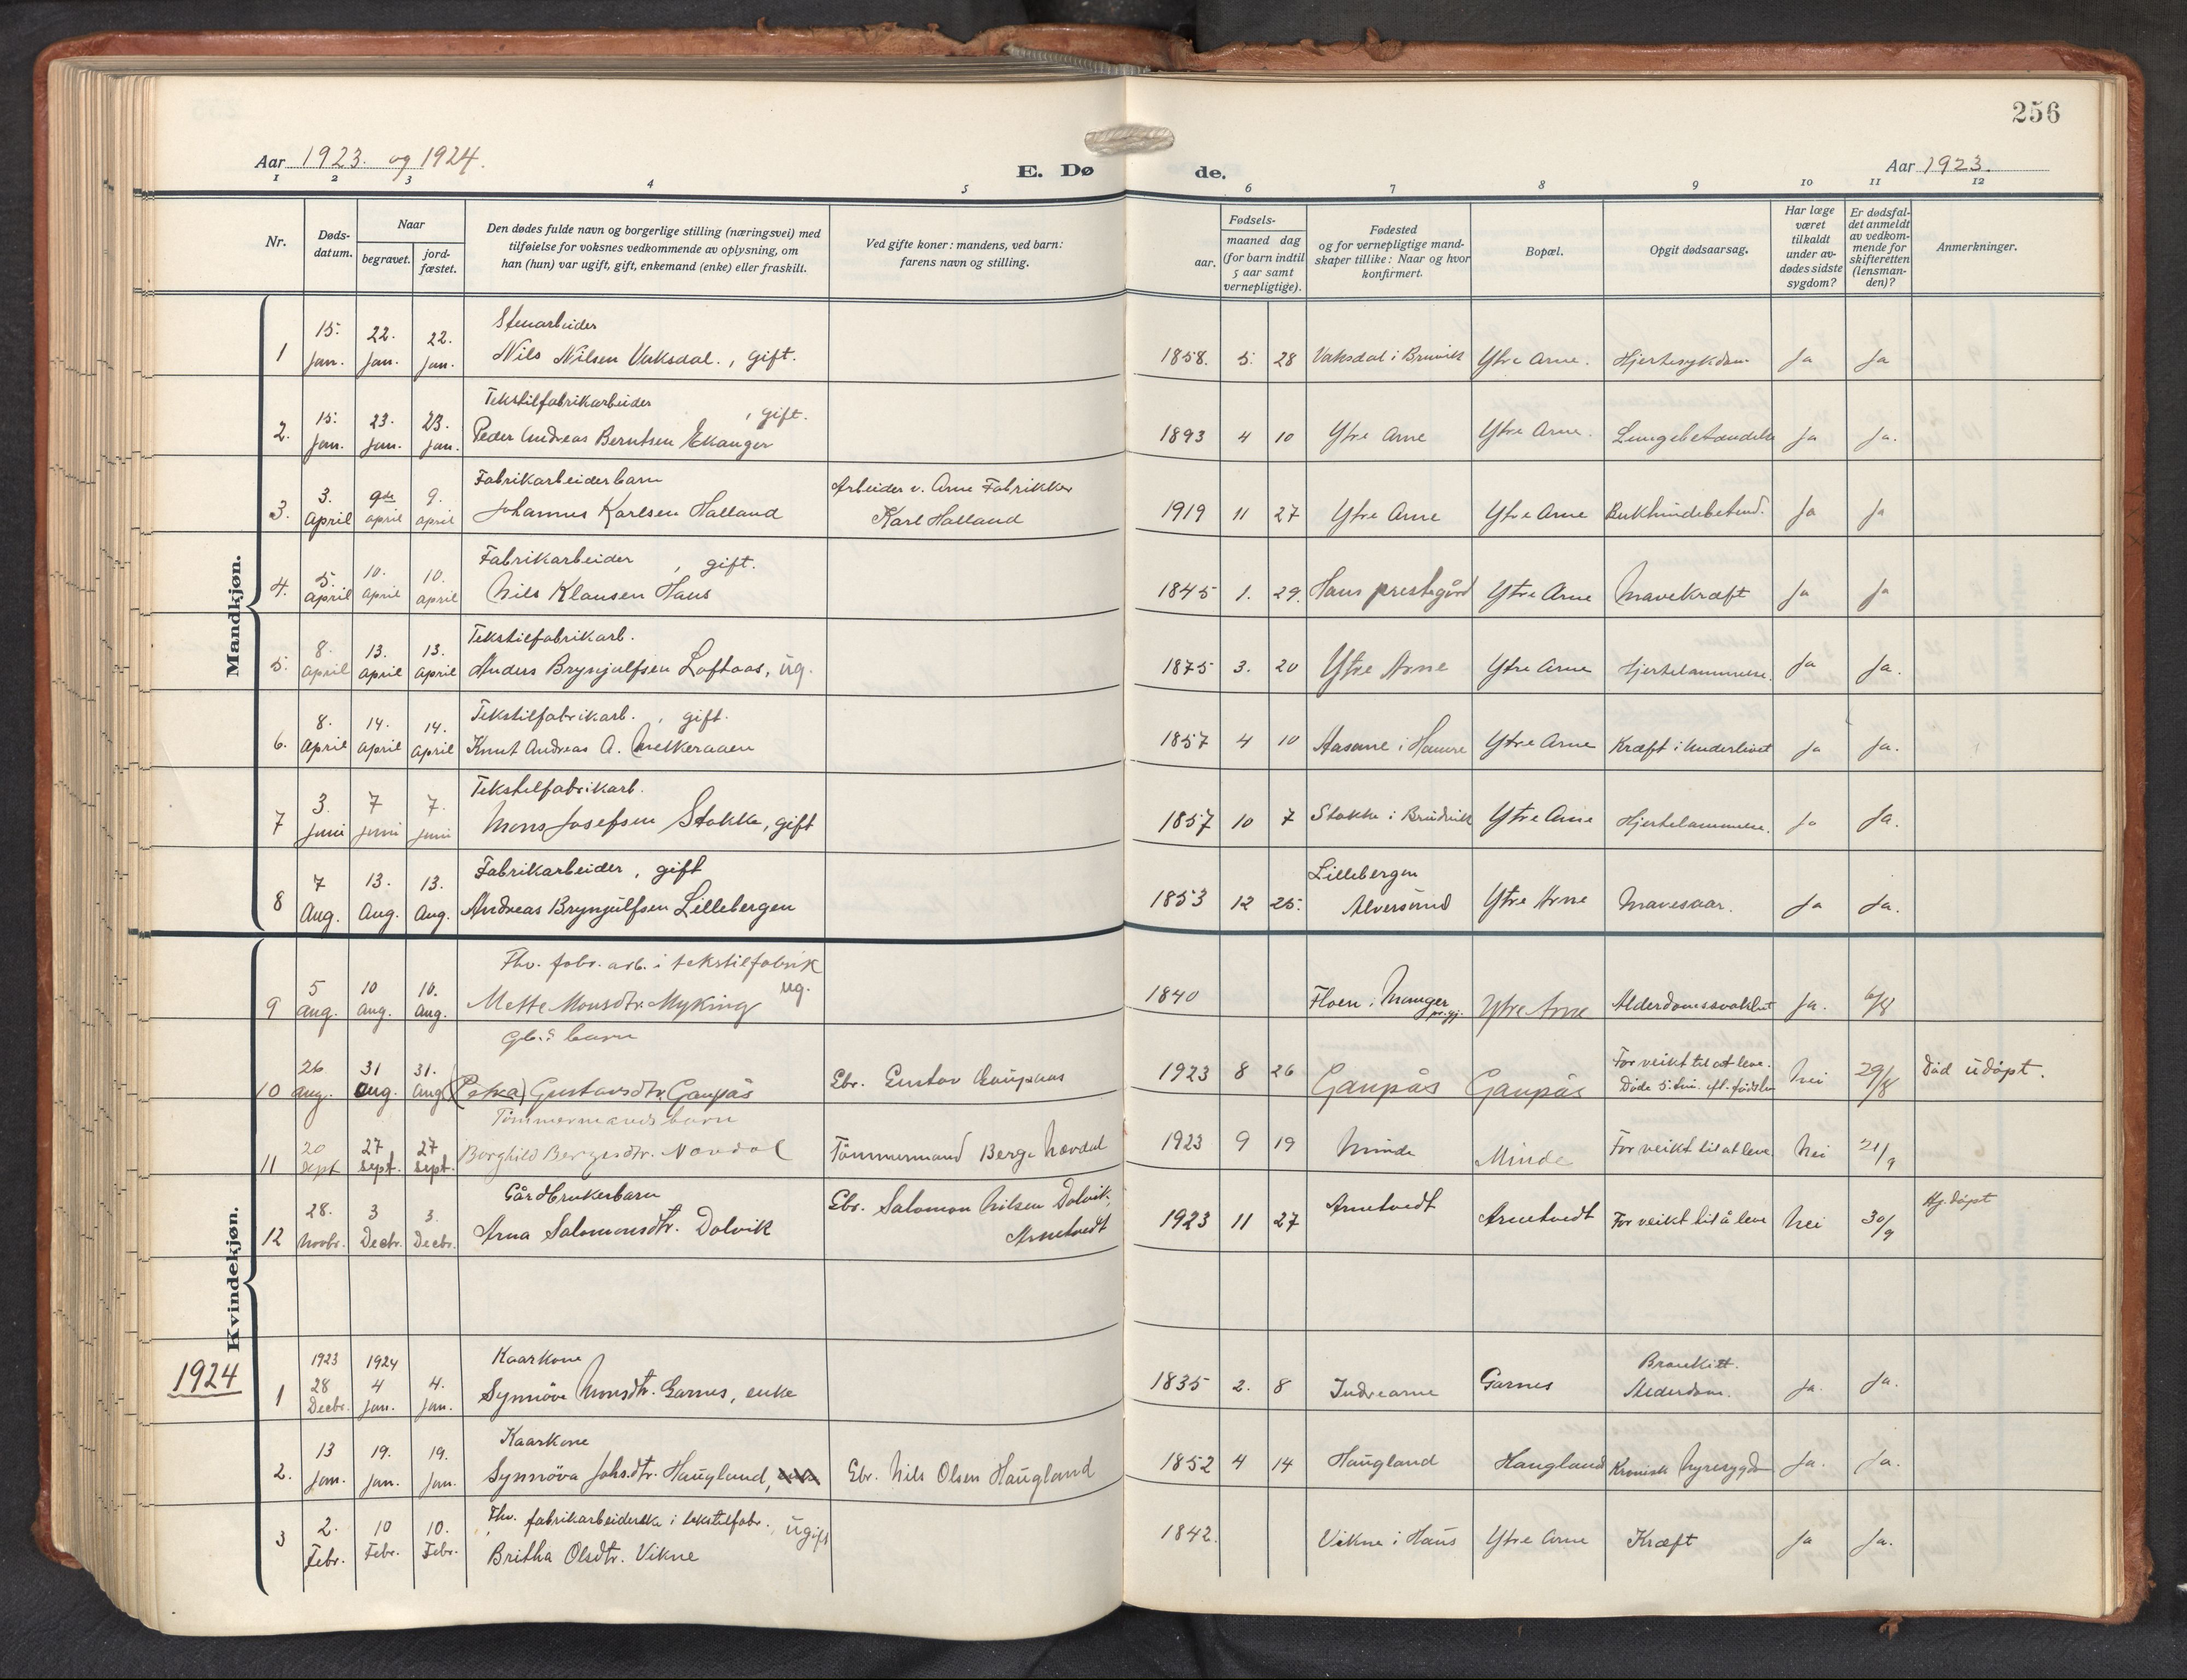 256
Aar 1923. og 1924.
E. Dø
de.
Aar 1923.
1 2 3 4 5 6 7 8 9 10 11 12
Nr.
Døds-
datum.
Naar
begravet.
jord-
fæstet.
Den dødes fulde navn og borgerlige stilling (næringsvei) med
tilføielse for voksnes vedkommende av oplysning, om
han (hun) var ugift, gift, enkemand (enke) eller fraskilt.
Ved gifte koner: mandens, ved barn:
farens navn og stilling.
Fødsels-
aar.
maaned dag
(for barn indtil
5 aar samt
vernepligtige).
Fødested
og for vernepligtige mand-
skaper tillike: Naar og hvor
konfirmert.
Bopæl.
Opgit dødsaarsag.
Har læge
været
tilkaldt
under av-
dødes sidste
sygdom?
Er dødsfal-
det anmeldt
av vedkom-
mende for
skifteretten
(lensman-
den)?
Anmerkninger.
Mandkjøn.
Stenarbeider
1 15. Jan. 22. Jan. 22. Jan. Nils Nilsen Vaksdal., gift. 1858. 5. 28 Vaksdal i Bruvik Ytre Arne. Hjertesykdom Ja Ja
Tekstilfabrikarbeider , gift.
2. 15. Jan. 23. Jan. 23. Jan. Peder Andreas Berntsen Ekanger 1893 4 10 Ytre Arne Ytre Arne. Lungebetændelse Ja Ja.
Fabrikarbeiderbarn Arbeider v. Arne Fabrikker
3. 3. April 9de april 9. april Johannes Karlsen Halland Karl Halland 1919 11 27 Ytre Arne Ytre Arne Bukhindebetend. Ja Ja
Fabrikarbeider , gift.
4. 5. April 10. April 10. april Nils Klausen Haus 1845 1. 29. Haus prestegård Ytre Arne Mavekræft Ja Ja
Tekstilfabrikarb.
5. 8. april 13. april 13. april Anders Brynjulfsen Loftaas, ug. 1875 3. 20 Ytre Arne Ytre Arne Hjertelammelse. Ja Ja.
Tekstilfabrikarb. , gift.
6. 8. April 14. april 14. april Knut Andreas A. Melkeraaen 1857 4 10 Aasane i Hamre Ytre Arne Kræft i Underlivet Ja Ja.
Tekstilfabrikarb.
7 3. Juni 7 Juni 7. Juni Mons Josefsen Stokke, gift 1857 10 7 Stokke i Ytre Arne Hjertelammelse. Ja Ja.
Fabrikarbeider, gift Lillebergen
8 7 Aug. 13. Aug. 13. Aug. Andreas Brynjulfsen Lillebergen 1853 12 25. Alversund Ytre Arne Mavesaar. Ja Ja.
Kvindekjøn.
Fhv. fabr. arb. i tekstilfabrik
ug.
9 5 aug. 10 aug. 10. aug. Mette Monsdtr. Myking 1840 Floen i Manger pr.gj. Ytre Arne Ja. 6/8
Gbr.s barn
10 26 aug. 31 aug. 31. aug (Petra) Gustavsdtr. Gaupås Gbr. Gustav Gaupaas 1923 8 26 Gaupås Gaupås For veikt til at leve. Døde 5. eft. fødslen Nei 29/8 Død udøpt.
Tømmermandsbarn
11 20 sept 27 sept. 27 sept. Borghild Bergesdtr. Nævdal Tømmermand Berge Nævdal 1923 9 19 Minde Minde For veikt til at leve Nei 21/9
Gårdbrukerbarn Gbr. Salomon Nilsen Dalvik,
12 28. Novbr. 3 Decbr. 3. Decbr. Arna Salomonsdtr. Dalvik Arnetvedt 1923 11 27 Arnetvedt Arnetvedt For veikt til å leve Nei 30/9 Hj. døpt
1924
1923 1924 Kaarkone
1 28 Decbr. 4 Jan. 4. Jan. Synnöve Monsdtr. Garnes, enke 1835 2. 8 Indrearne Garnes Bronkitt. Alderdom. Ja. Ja.
Kaarkone
2. 13 Jan. 19. Jan. 19. Jan. Synnöva Johsdtr. Haugland, Gbr. Nils Olsen Haugland 1852 4 14 Haugland Haugland Kronisk Nyresygd. Ja. Ja.
Fhv. fabrikarbeiderske i tekstilfabr. , ugift
3 2. Febr. 10 Febr. 10. Febr. Britha Olsdtr. Vikne 1842. Vikne i Haus Ytre Arne Kræft Ja Ja.